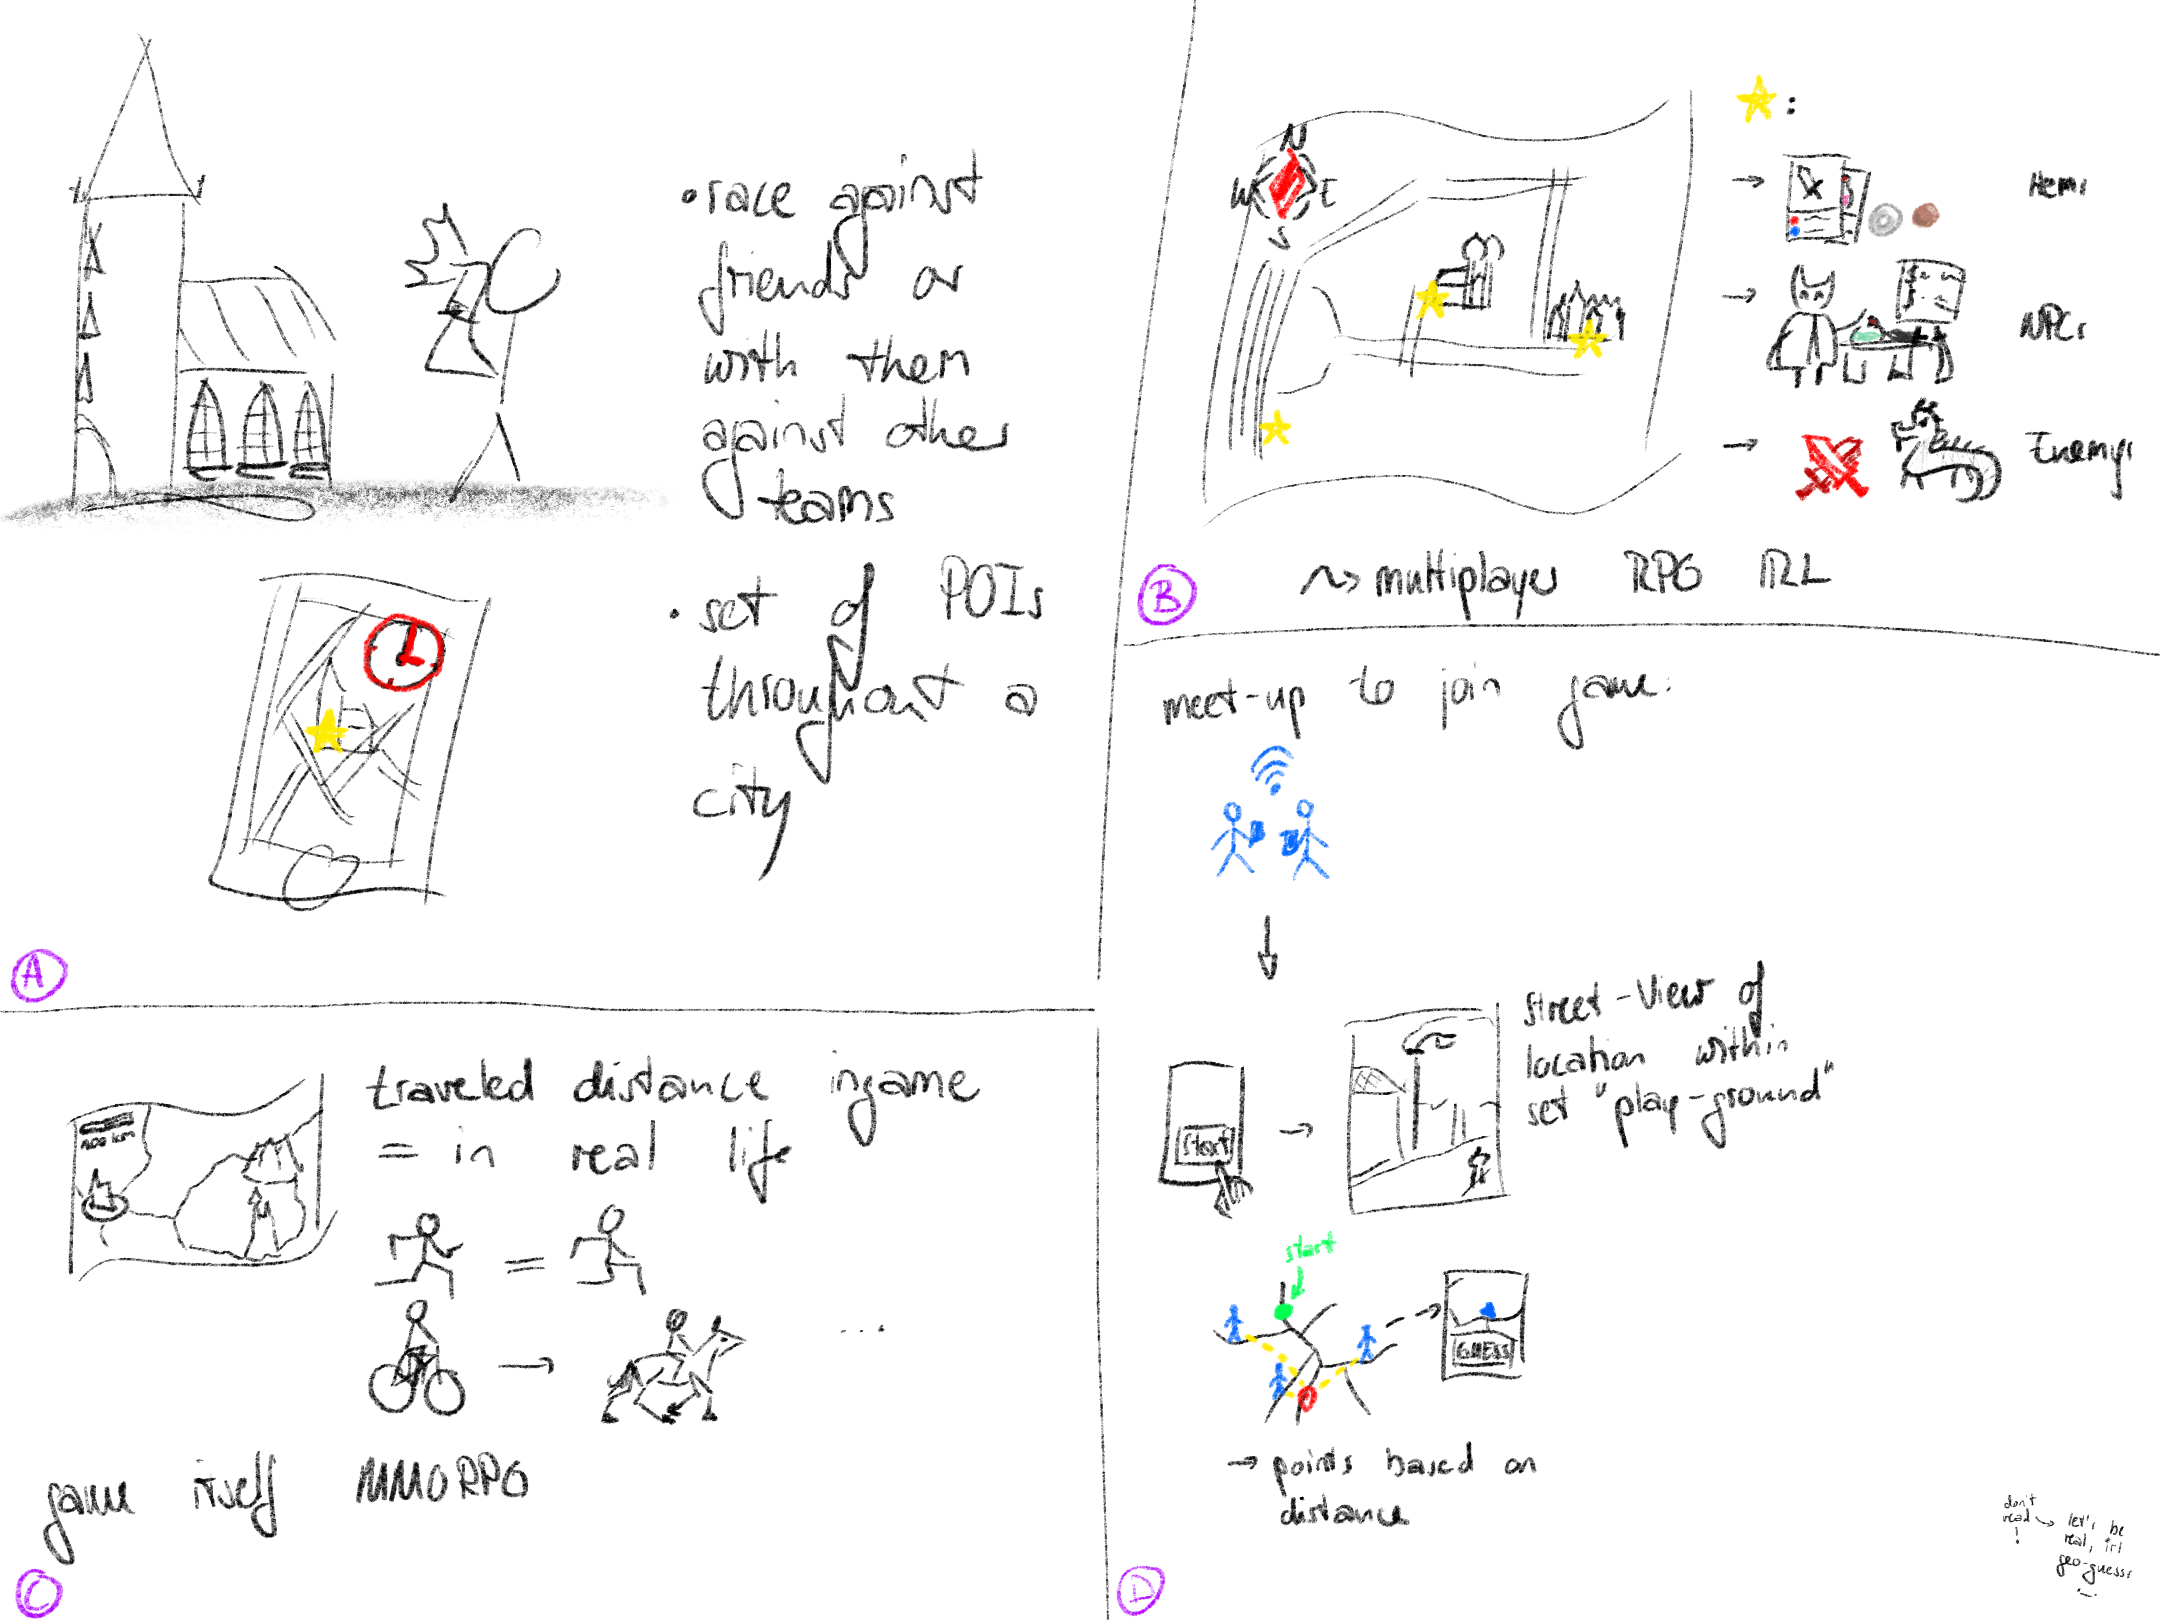 • race against
friends or
with them
against other
teams
• set of POIs
throughout a
city
A
N
W E
S
:
→ Items
→ NPCs
→ Enemys
~> multiplayer RPG IRL
B
100 km
traveled distance ingame
= in real life
=
→ ...
game itself MMORPG
C
meet-up to join game:
Start
→
street-View of
location within
set "play-ground"
start
GUESS
→ points based on
distance
D
don't
read →
!
let's be
real, irl
geo-guessr